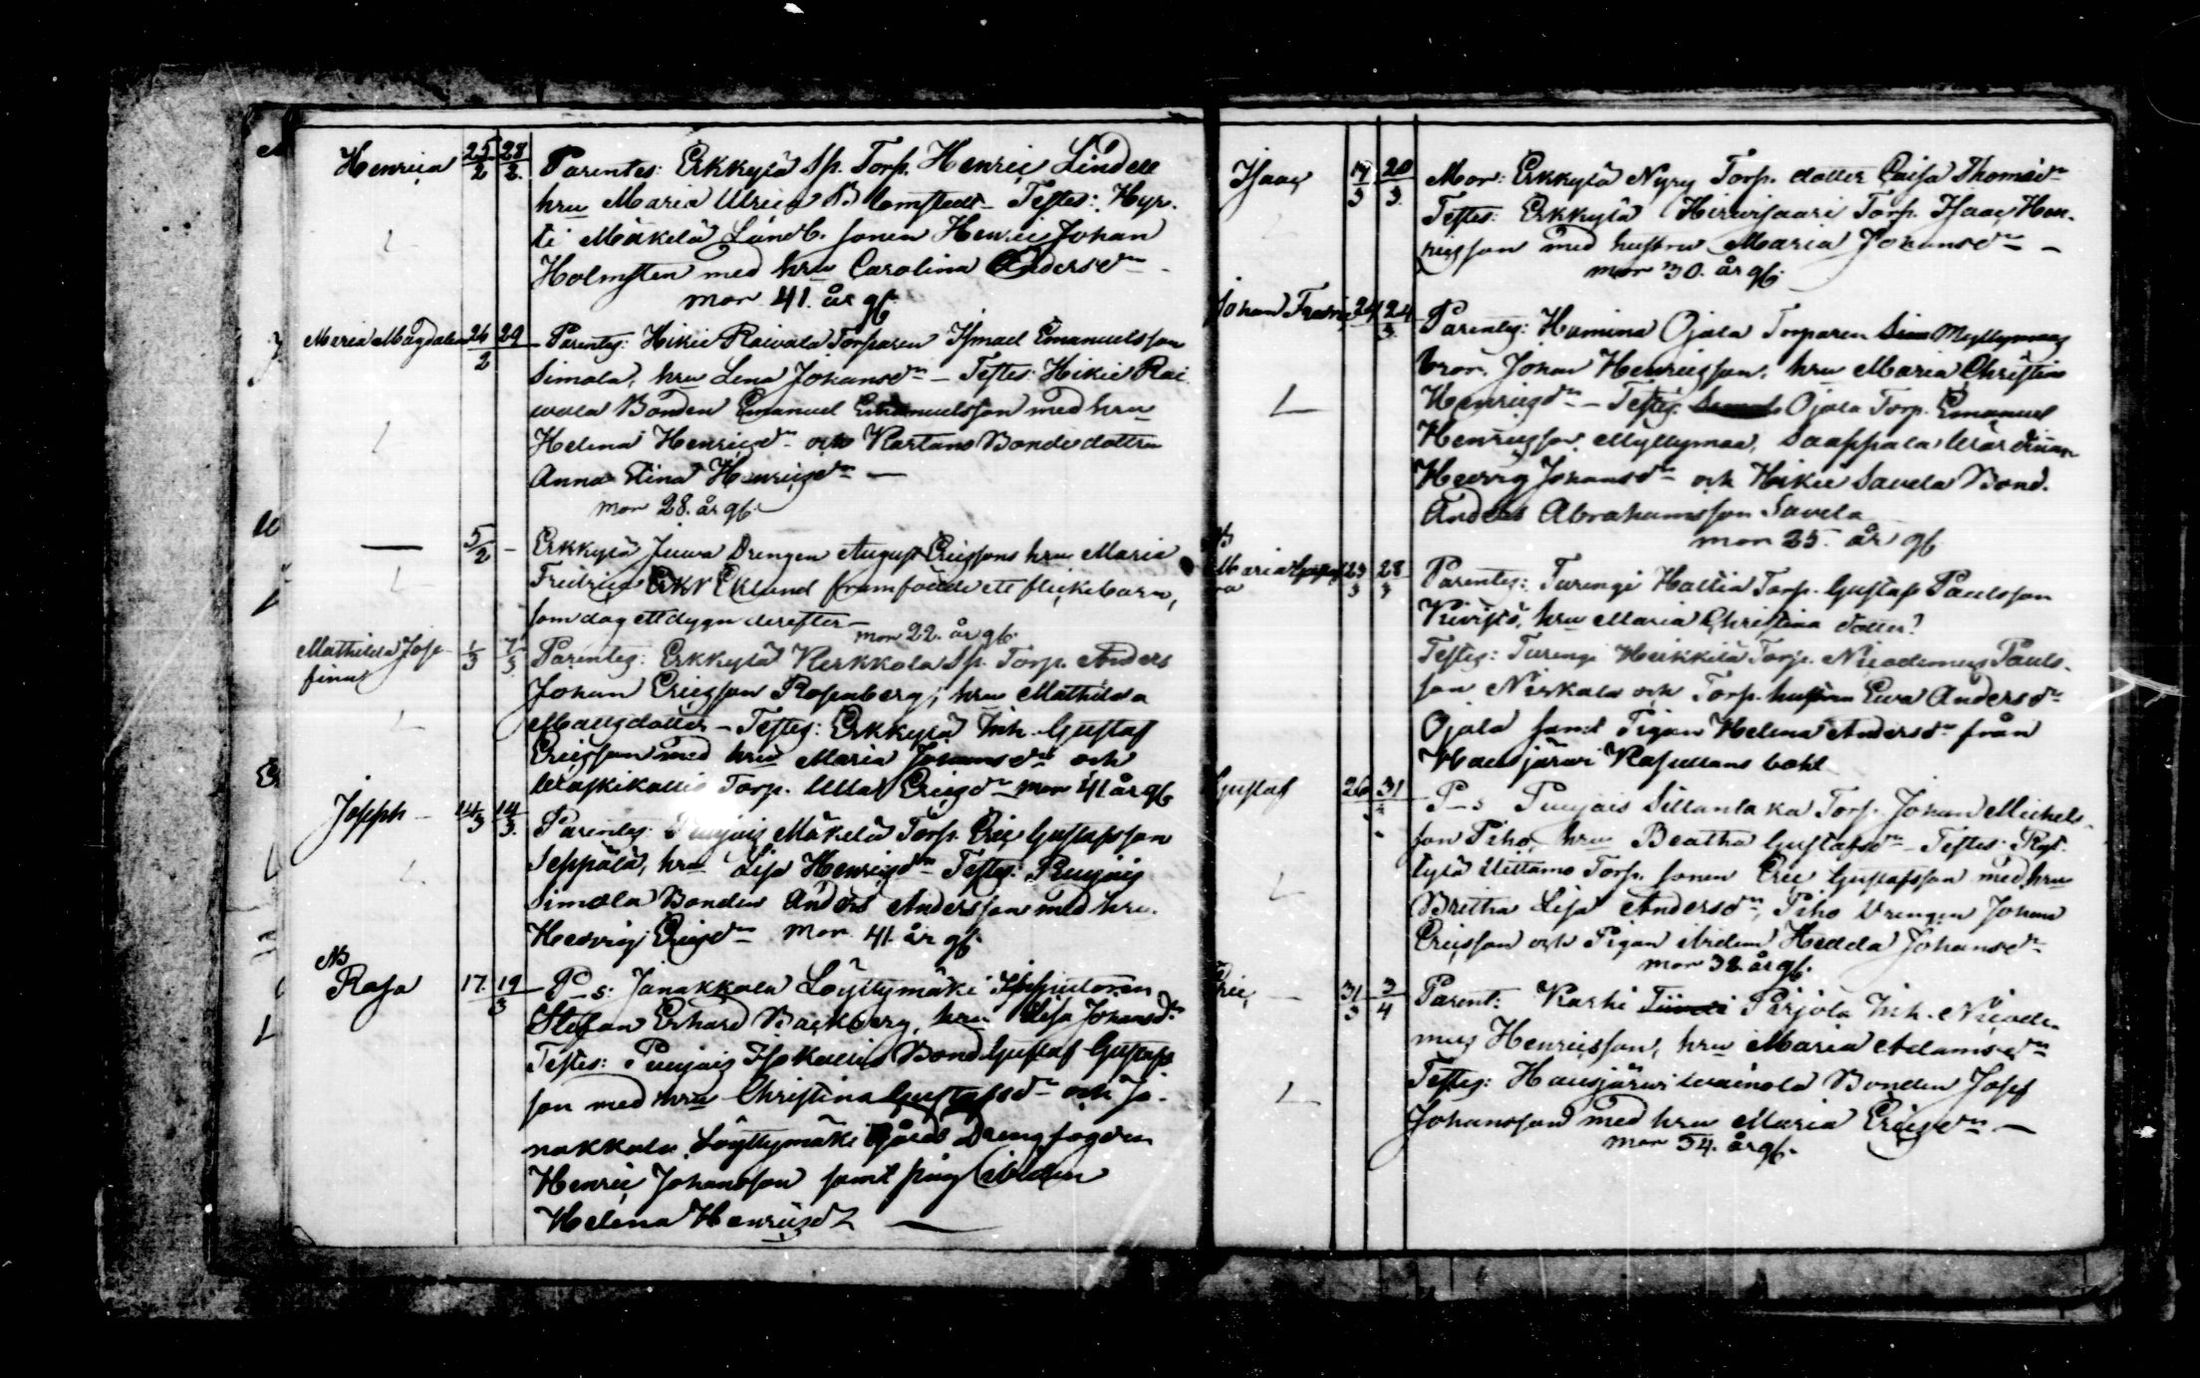 Henrica 25/2 28/2. Parentes: Erkkylä Sp. Torp. Henric Lindell
hru Maria Ulrica Blomstedt – Testes: Hyr-
ti Mäkelä Landb. sonen Henric Johan
Holmsten med hru Carolina Andersdr –
mor 41. år gl.
Maria Magdalena 26/2 29 Parentes: Hikiä Raivala Torparen Ismael Emanuelsson
Simola, hru Lena Johansdr – Testes: Hikiä Rai
vala Bonden Emanuel Emanuelsson med hru
Helena Henricsdr och Kartano Bonde dottren
Anna Stina Henricsdr –
mor 28. år gl.
— 5/2 – Erkkylä Juwa Drengen August Ericssons hru Maria
Fredrica Eklund framfödde ett flickebarn,
som dog ett dygn derefter –
mor 22. år gl.
Mathilda Jose- 1/3 7/3 Parentes: Erkkylä Kerkkola Sp. Torp. Anders
fina Johan Ericsson Rosenberg, hru Mathilda
Matsdotter – Testes: Erkkylä Inh. Gustaf
Ericsson med hru Maria Johansdr och
Waskikallio Torp. Ulla Ericsdr mor 41 år gl
Joseph – 14/3 14/3. Parentes: Puujais Mäkelä Torp. Eric Gustafsson
Seppälä, hru Lisa Henricsdr – Testes: Puujais
Simola Bonden Anders Andersson med hru.
Hedvig Ericsdr mor 41. år gl.
NB
Rosa 17. 19/3 P_s: Janakkala Löyttymäki Inspectoren
Stefan Erhard Backberg, hru Lisa Johansdr
Testes: Puujais Isokallio Bond. Gustaf Gustafs
son med hru Christina Gustafsdr och Ja-
nakkala Löyttymäki Gårds Drengfogden
Henric Johansson samt pig
Helena Henricsd
Isaac 17/3 20/3. Mor: Erkkylä Nyry Torp. dotter Caisa Thomasdr
Testes: Erkkylä Hirvisaari Torp. Isaac Hen-
ricsson med hustru Maria Johansdr –
mor 30. år gl.
Johan Fredric 24 24/3. Parentes: Hamina Ojala Torparen Myllymaas
bror. Johan Henricsson, hru Maria Christina
Henricsdr – Testes: Ojala Torp. Emanuel
Henricsson Myllymaa, Saappala
Hedvig Johansdr och Hikiä Savela Bond.
Anders Abrahamsson Savela
mor 25. år gl
NB
Maria Gusta- 23/3 28/3 Parentes: Turengi Hallia Torp. Gustaf Paulsson
va Kivistö, hru Maria Christina dotter?
Testes: Turengi Heikkilä Torp. Nicodemus Pauls-
son Niskala och Torp. hustrun Eva Andersdr
Ojala samt Pigan Helena Andersdr från
Hausjärvi bohl
Gustaf 26 31 P_s Puujais Sillantaka Torp. Johan Michels-
son Piho, hru Beatha Gustafsdr – Testes:
Torp. sonen Eric Gustafsson med hru
Britha Lisa Andersdr, Piho Drengen Johan
Ericsson och Pigan Hedda Johansdr
mor 38 år gl.
Eric, – 31/3 3/4 Parent: Karhi Pirjola Inh. Nicode-
mus Henricsson, hru Maria Adamsdr
Testes: Hausjärvi Wainola Bonden Josef
Johansson med hru Maria Ericsdr –
mor 34. år gl.